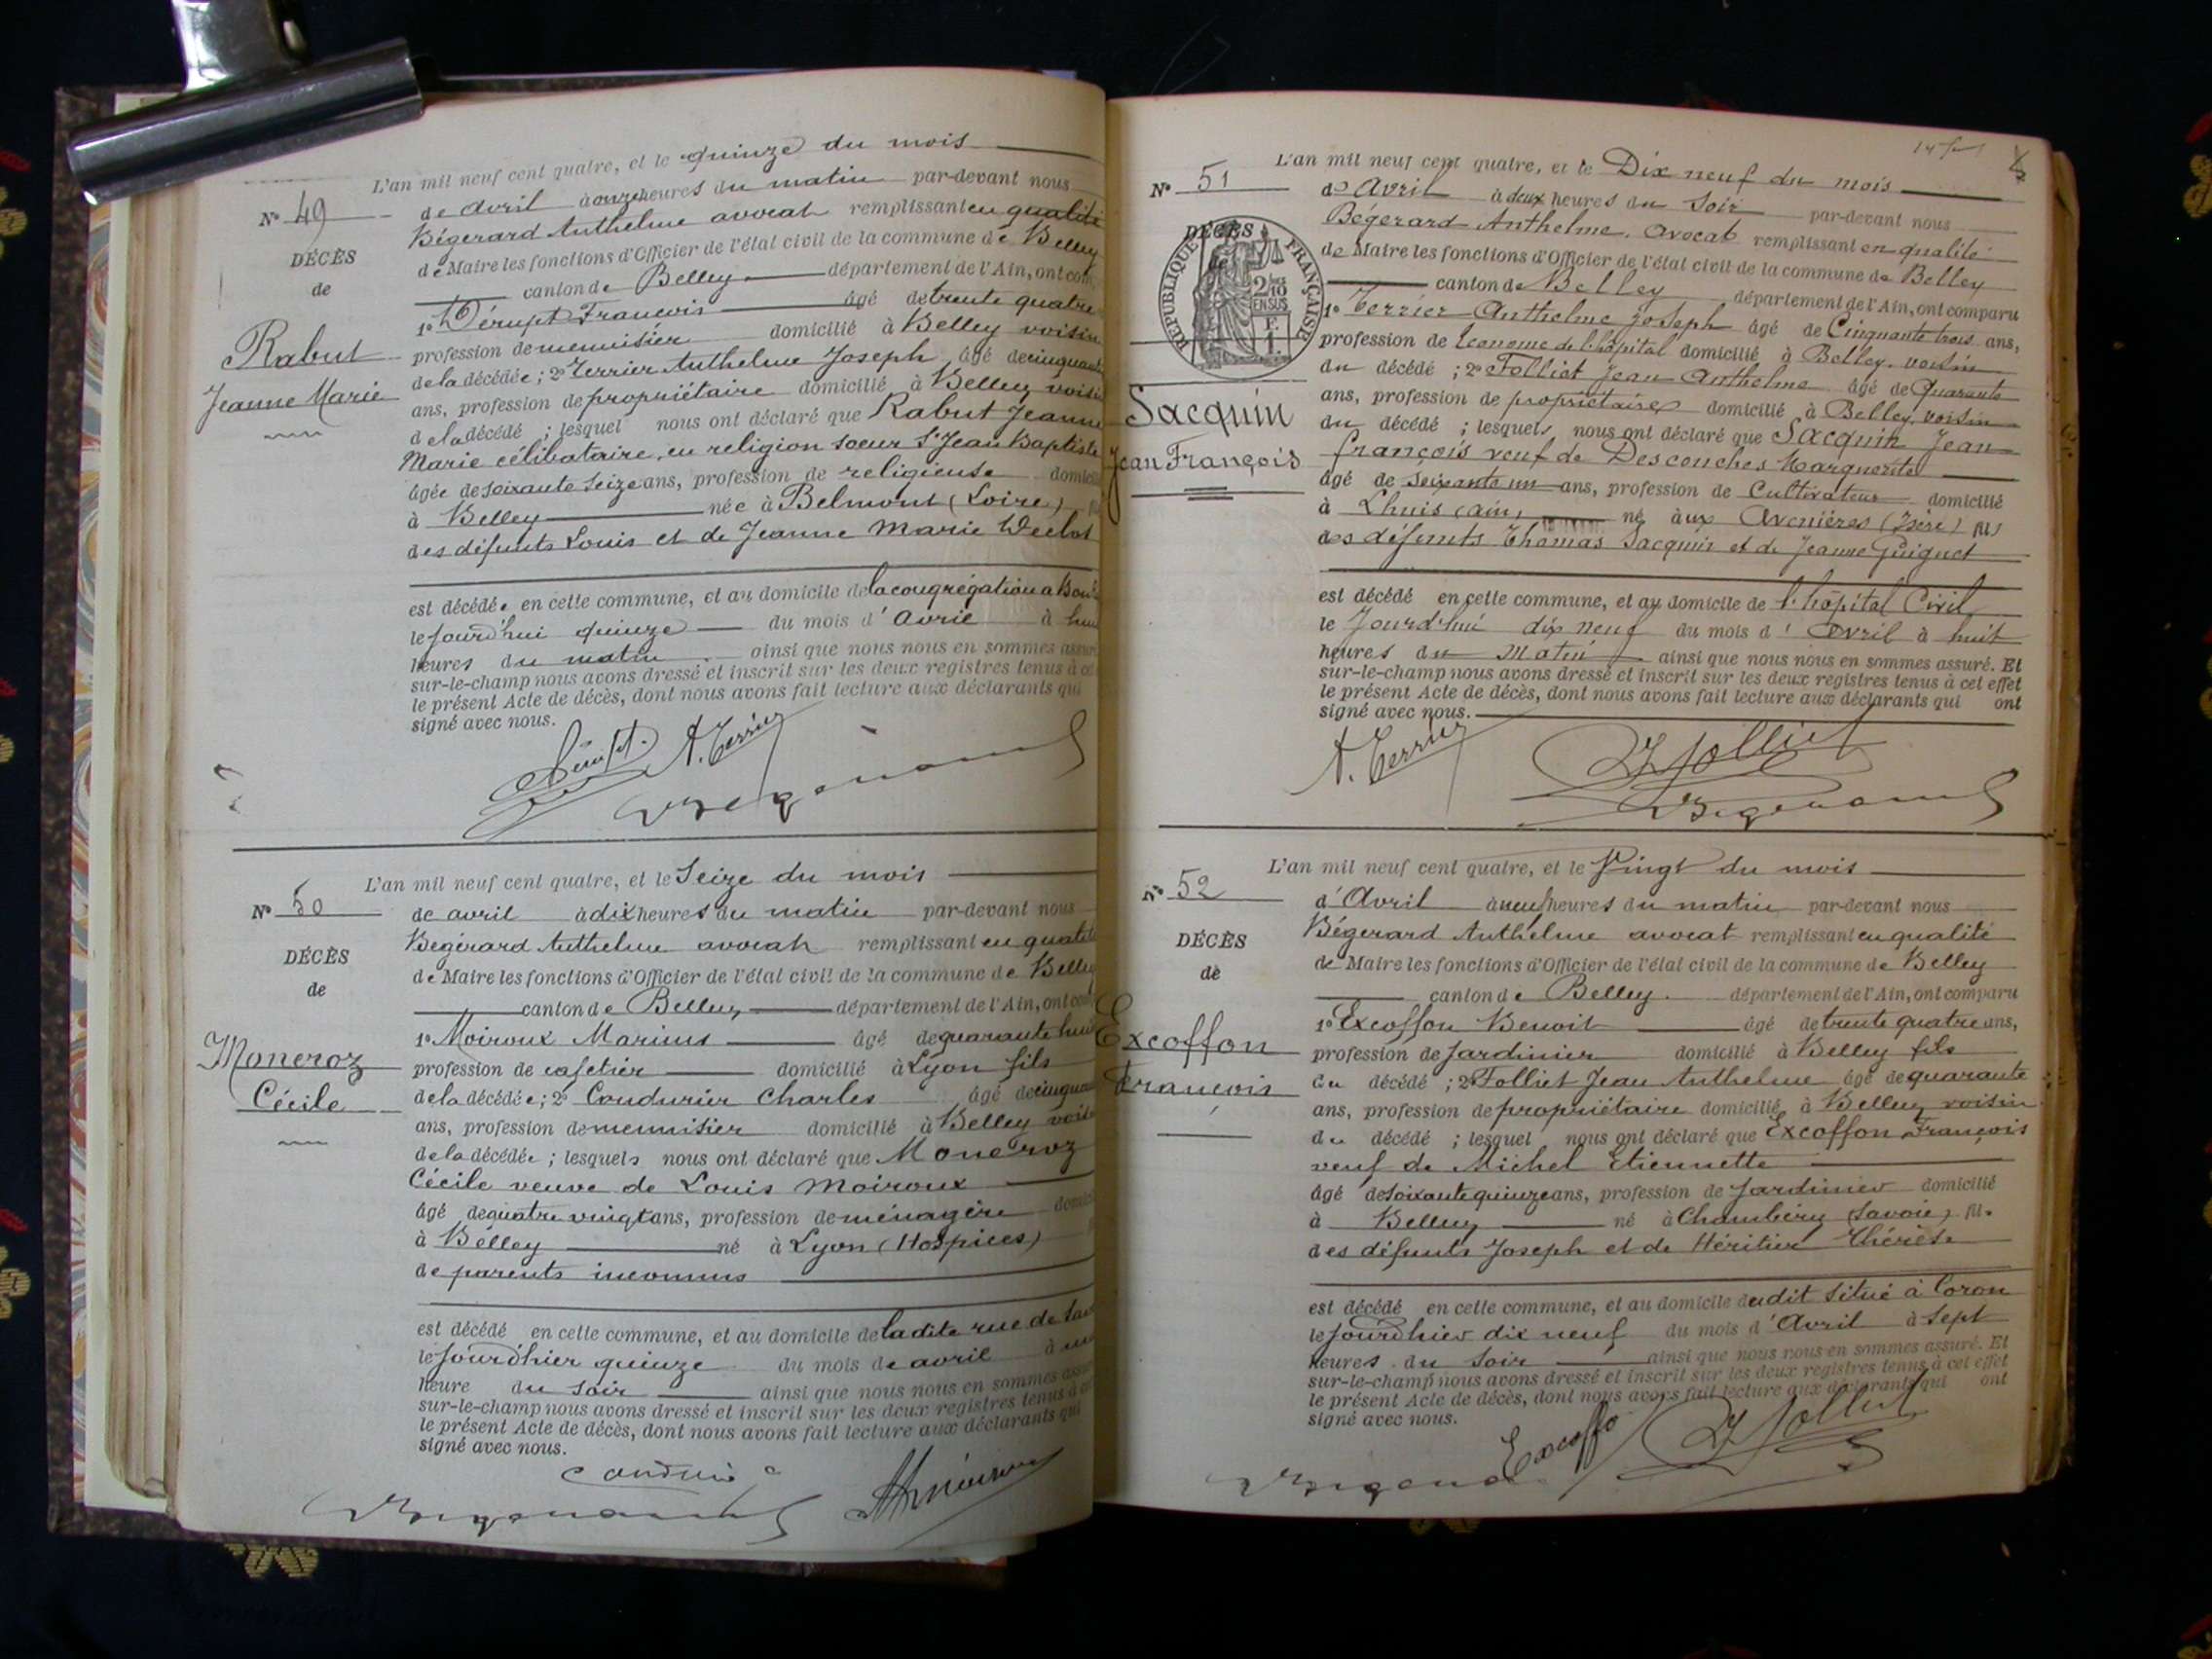 L'an mil neuf cent quatre, et le quinze du mois
N° 49
de avril à onze heures du matin par-devant nous
Bégerard Anthelme avocat remplissant en qualité
DÉCÈS
de Maire les fonctions d'Officier de l'état civil de la commune de Belley
de
canton de Belley département de l'Ain, ont com
1° Dérupt Francois âgé de trente quatre
Rabut
profession de menuisier domicilié à Belley voisin
Jeanne Marie
de la décédée ; 2° Terrier Anthelme Joseph âgé de cinquante
ans, profession de propriétaire domicilié à Belley voisin
de la décédé ; lesquel nous ont déclaré que Rabut Jeanne
Marie célibataire, en religion soeur St Jean Baptiste
âgée de soixante seize ans, profession de religieuse domici
à Belley née à Belmont (Loire)
des défunts Louis et de Jeanne Marie
est décédée en cette commune, et au domicile de la congrégation a
le jourd'hui quinze du mois d'Avril à hui
heures du matin ainsi que nous nous en sommes assuré
sur-le-champ nous avons dressé et inscrit sur les deux registres tenus à cet
le présent Acte de décès, dont nous avons fait lecture aux déclarants qui
signé avec nous.
A. Terrier
L'an mil neuf cent quatre, et le Seize du mois
N° 50
de avril à dix heures du matin par-devant nous
Begérard Anthelme avocat remplissant en qualité
DÉCÈS
de Maire les fonctions d'Officier de l'état civil de la commune de Belley
de
canton de Belley département de l'Ain, ont com
1° Moiroux Marius âgé de quarante huit
Moneroz
profession de cafetier domicilié à Lyon fils
Cécile
de la décédée ; 2° Condurier Charles âgé de cinquan
ans, profession de menuisier domicilié à Belley voisi
de la décédée ; lesquels nous ont déclaré que Moneroz
Cécile veuve de Louis Moiroux
âgé de quatre vingt ans, profession de ménagère domici
à Belley né à Lyon (Hospices)
de parents inconnus
est décédé en cette commune, et au domicile de ladite rue de
le jourd'hier quinze du mois de avril à une
heure du soir ainsi que nous nous en sommes assu
sur-le-champ nous avons dressé et inscrit sur les deux registres tenus à
le présent Acte de décès, dont nous avons fait lecture aux déclarants qui
signé avec nous.
L'an mil neuf cent quatre, et le Dix neuf du mois
N° 51
de Avril à deux heures du Soir par-devant nous
Bégerard Anthelme, Avocat remplissant en qualité
DÉCÈS
RÉPUBLIQUE FRANÇAISE
2/10 EN SUS
de Maire les fonctions d'Officier de l'état civil de la commune de Belley
canton de Belley département de l'Ain, ont comparu
1° Terrier Anthelme Joseph âgé de Cinquante trois ans,
profession de Econome de l'hopital domicilié à Belley, voisin
du décédé ; 2° Folliet Jean Anthelme âgé de Quarante
Sacquin
ans, profession de propriétaire domicilié à Belley, voisin
du décédé ; lesquels nous ont déclaré que Sacquin Jean
Jean François
françois veuf de Desconches Marguerite
âgé de soixante un ans, profession de Cultivateur domicilié
à Lhuis (ain) né aux Avenières (Isère) fils
des défunts Thomas Sacquin et de Jeanne Guiguet
est décédé en cette commune, et au domicile de l'hôpital Civil
le Jourd'hui dix neuf du mois d'Avril à huit
heures du Matin ainsi que nous nous en sommes assuré. Et
sur-le-champ nous avons dressé et inscrit sur les deux registres tenus à cet effet
le présent Acte de décès, dont nous avons fait lecture aux déclarants qui ont
signé avec nous.
A. Terrier Folliet
L'an mil neuf cent quatre, et le Vingt du mois
N° 52
d'Avril à neuf heures du matin par-devant nous
Bégerard Anthelme avocat remplissant en qualité
DÉCÈS
de Maire les fonctions d'Officier de l'état civil de la commune de Belley
de
canton de Belley département de l'Ain, ont comparu
1° Excoffon Benoit âgé de trente quatre ans,
Excoffon
profession de Jardinier domicilié à Belley fils
Francois
du décédé ; 2° Folliet Jean Anthelme âgé de quarante
ans, profession de propriétaire domicilié à Belley voisin
du décédé ; lesquel nous ont déclaré que Excoffon François
veuf de Michel Etiennette
âgé de soixante quinze ans, profession de Jardinier domicilié
à Belley né à Chambéry (Savoie) fils
des défunts Joseph et de Héritier Thérèse
est décédé en cette commune, et au domicile dudit situé à Coron
le jourd'hier dix neuf du mois d'Avril à sept
heures du soir ainsi que nous nous en sommes assuré. Et
sur-le-champ nous avons dressé et inscrit sur les deux registres tenus à cet effet
le présent Acte de décès, dont nous avons fait lecture aux déclarants qui ont
signé avec nous.
Excoffo Folliet